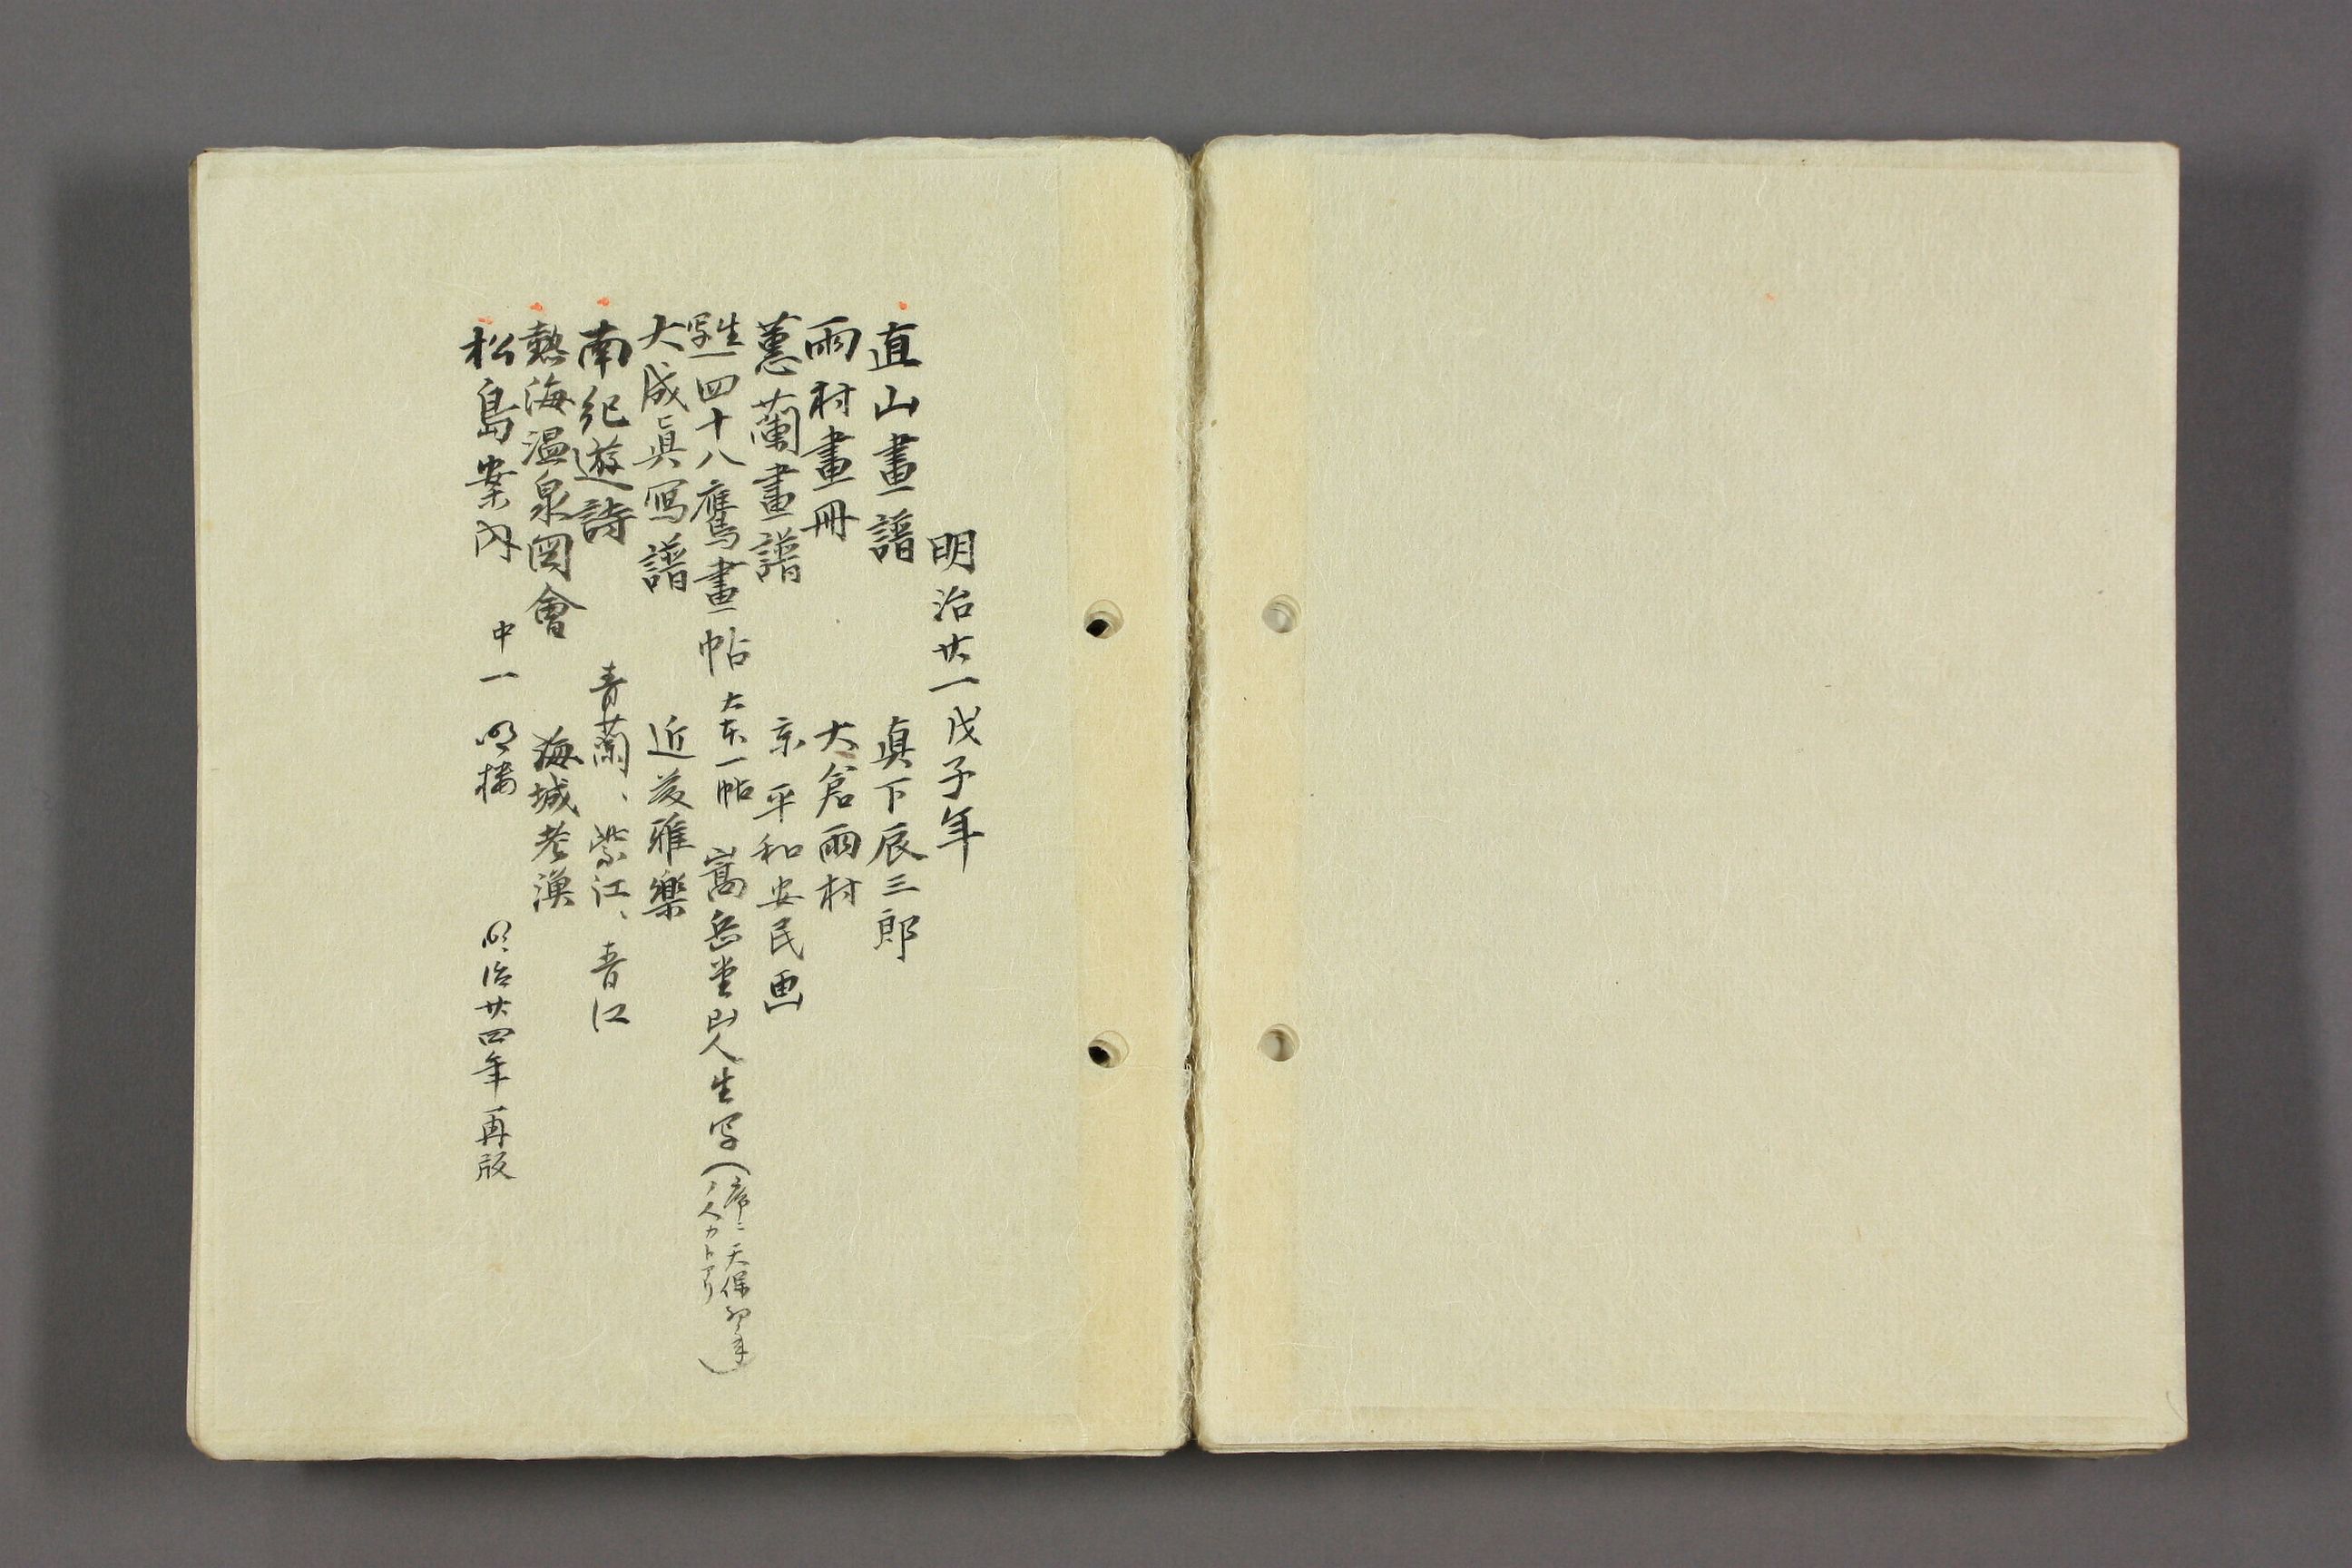 明治廿一戊子年
直山畫譜 眞下辰三郎
雨村畫冊 大倉雨村
蕙蘭畫譜 京 平和安民画
生写四十八鷹畫帖 大本一帖 嵩岳堂山人生写(序ニ天保初年ノ人カトアリ)
大成眞写譜 近藤雅樂
南紀遊詩 青蘭、紫江、青江
熱海温泉図會 海城老漁
松島案内 中一 明治廿四年再版